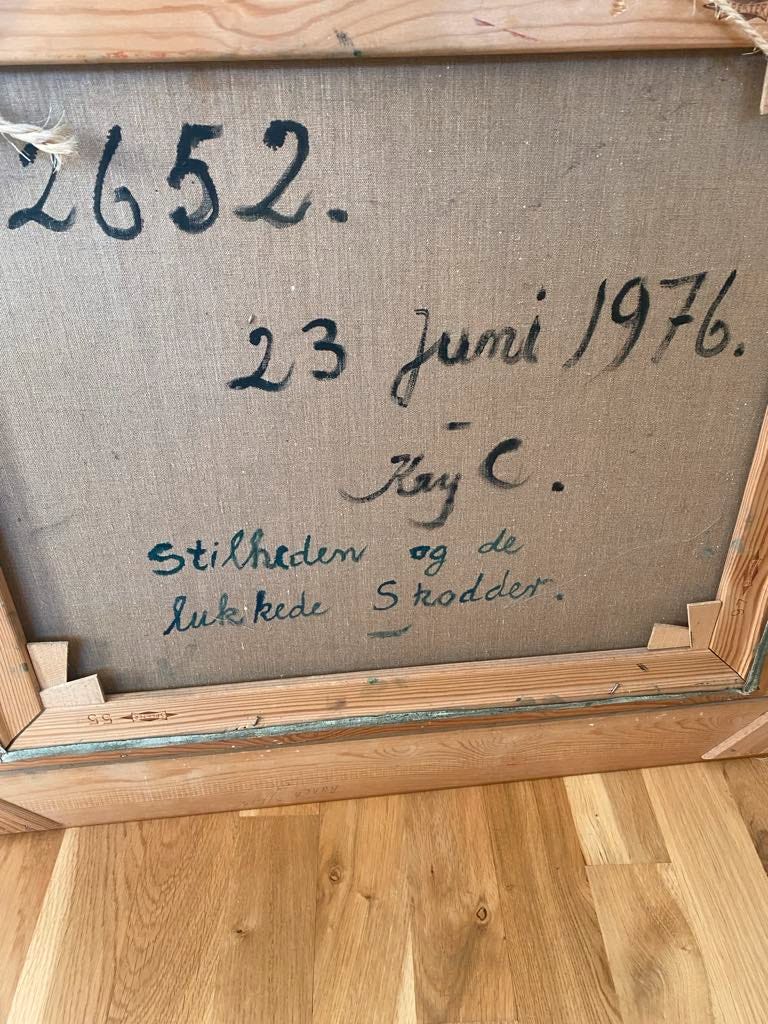 2652.
23 Juni 1976.
Kay C.
Stilheden og de
lukkede Skodder.
55